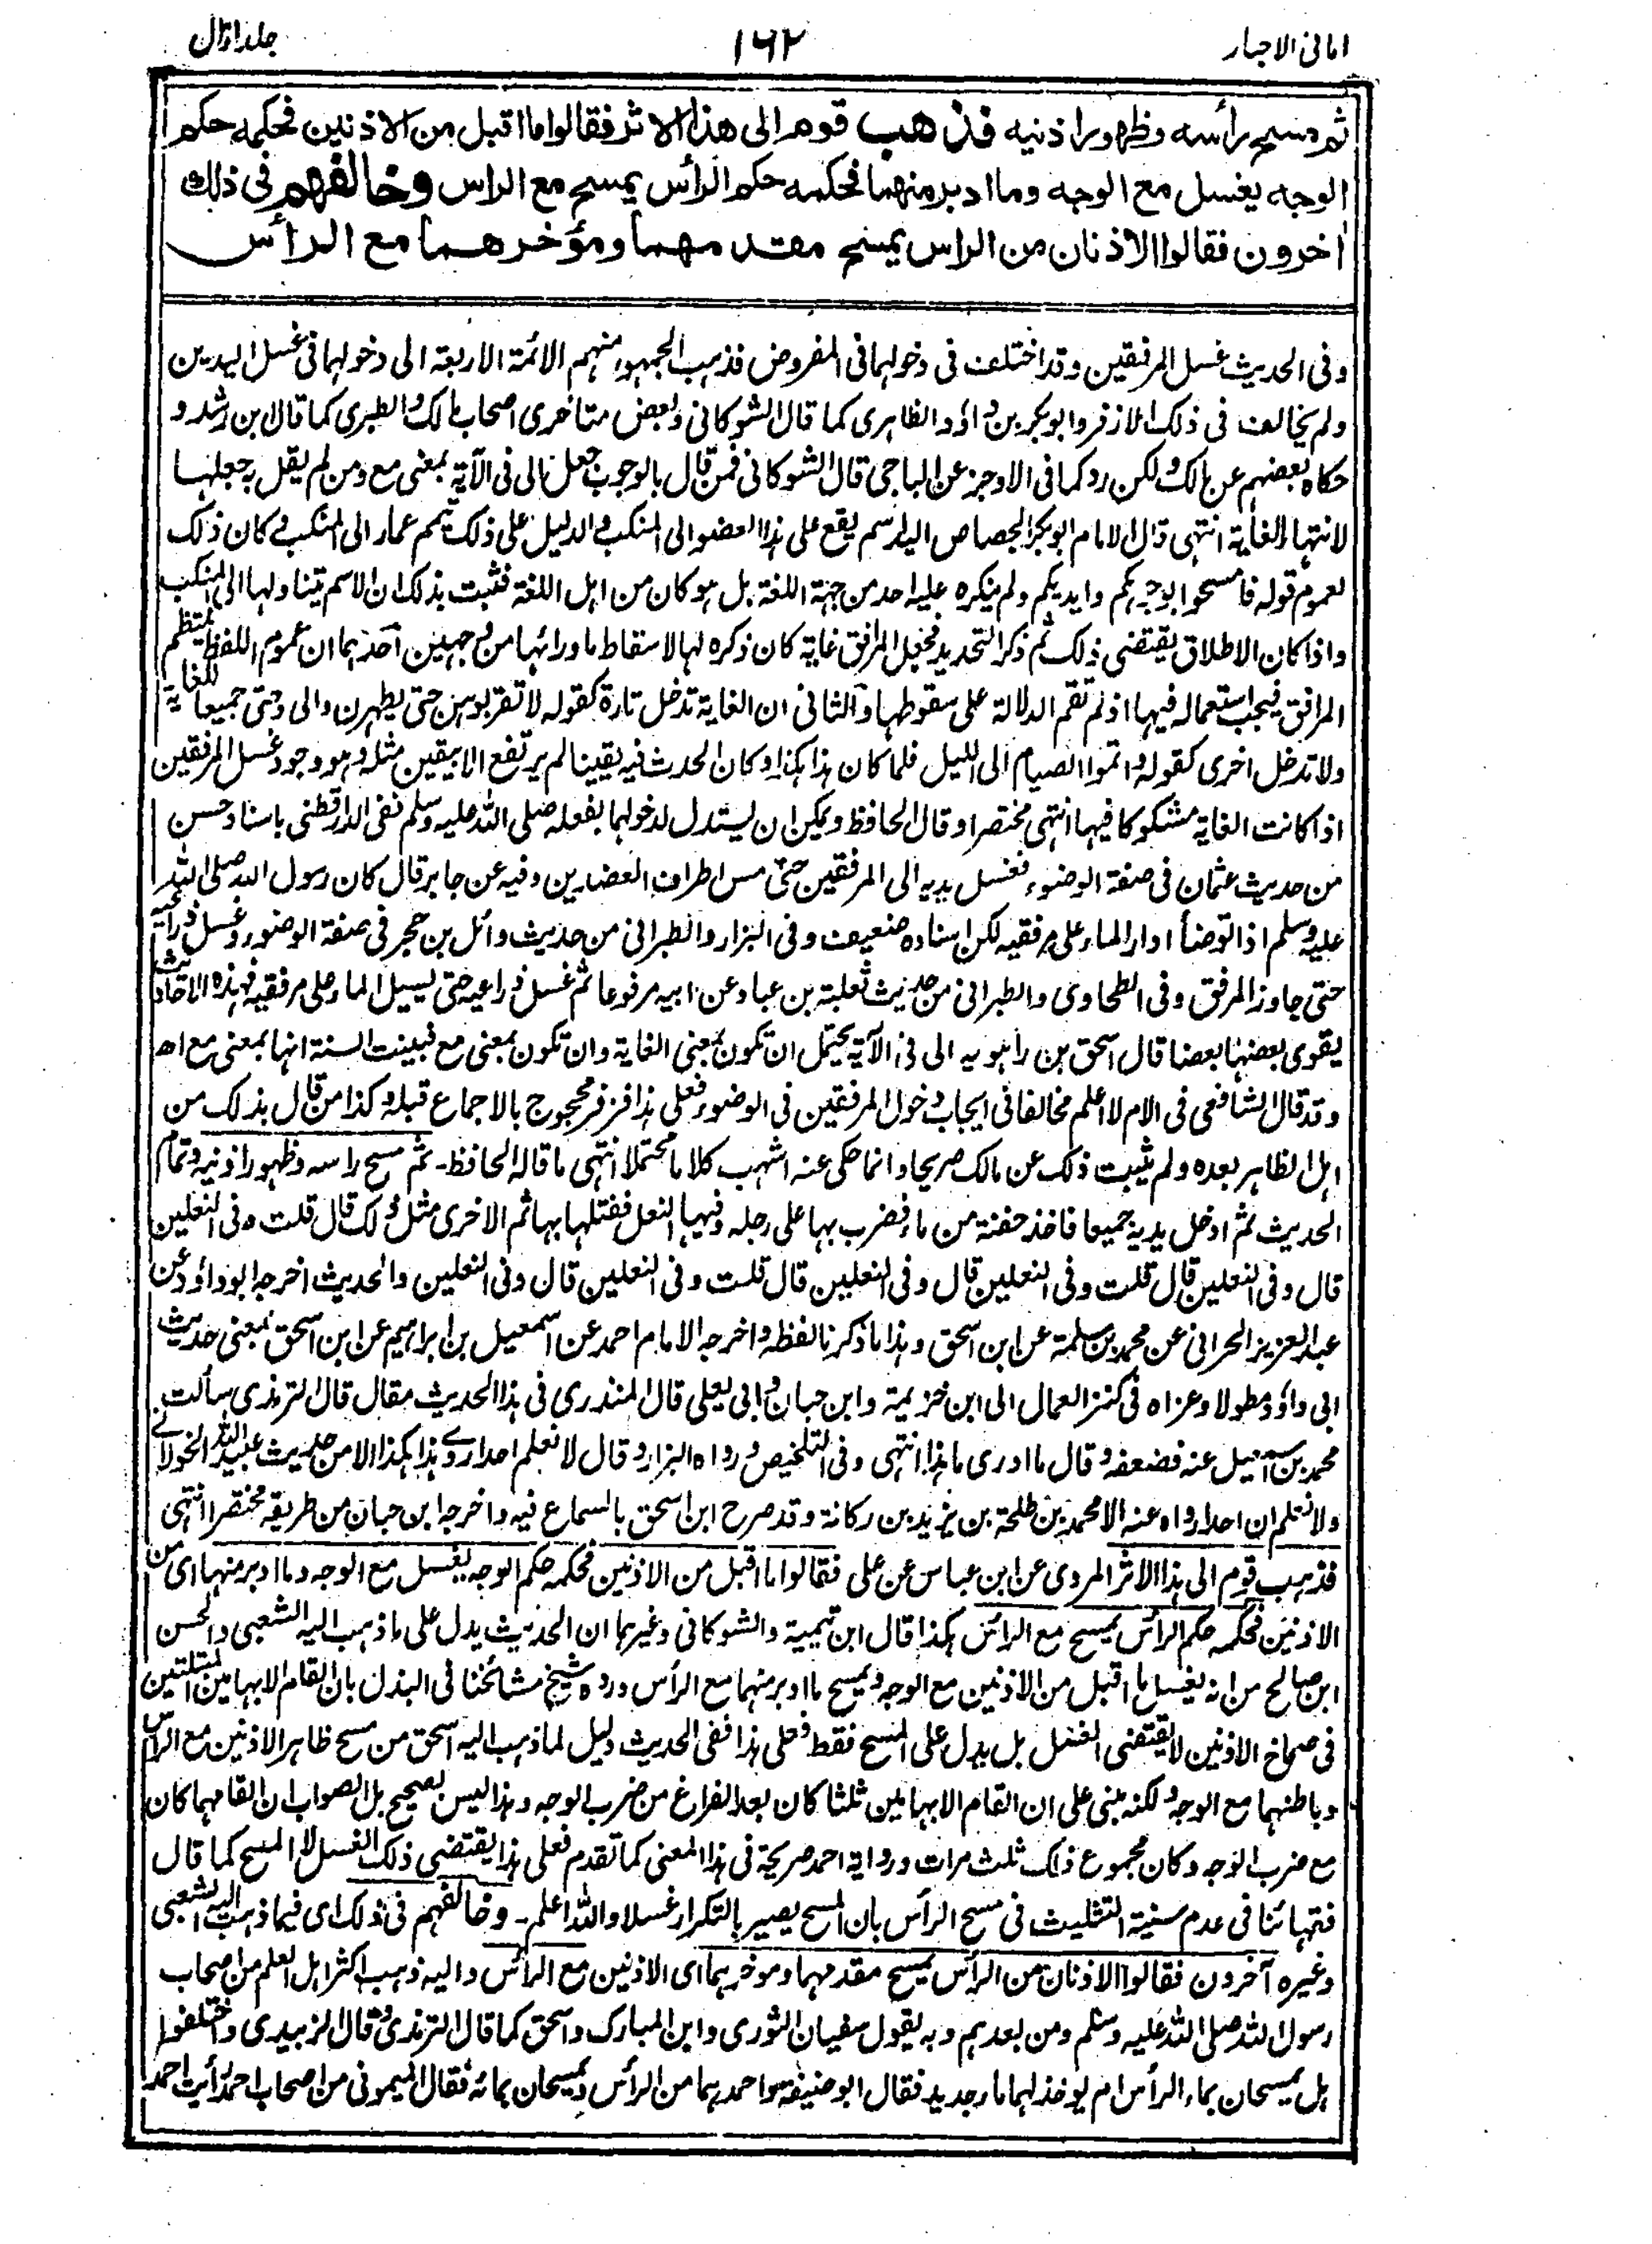 امانی الاحبار ۱۶۲ جلد اول
ثم مسح رأسه وظهور اذنيه فذهب قوم الى هذا الاثر فقالوا ما اقبل من الاذنين فحكمه حكم
الوجه يغسل مع الوجه وما ادبر منهما فحكمه حكم الرأس يمسح مع الراس وخالفهم فى ذلك
اخرون فقالوا الاذنان من الراس يمسح مقدمهما ومؤخرهما مع الرأس
وفى الحديث غسل المرفقين وقد اختلف فى دخولهما فى المفروض فذهب الجمهور منهم الائمة الاربعة الى دخولهما فى غسل اليدين
ولم يخالف فى ذلك الا زفر وابو بكر بن داؤد الظاهرى كما قال الشوكانى وبعض متأخرى اصحاب مالك والطبرى كما قال ابن رشد و
حكاه بعضهم عن مالك ولكن رد كما فى الاوجز عن الباجى قال الشوكانى فمن قال بالوجوب جعل الى فى الآية بمعنى مع ومن لم يقل به جعلها
لانتهاء الغاية انتهى قال الامام ابو بكر الجصاص اليد اسم يقع على هذا العضو الى المنكب والدليل على ذلك تيمم عمار الى المنكب وكان ذلك
لعموم قوله فامسحوا بوجوهكم وايديكم ولم ينكره عليه احد من جهة اللغة بل هو كان من اهل اللغة فثبت بذلك ان الاسم يتناولها الى المنكب
واذا كان الاطلاق يقتضى ذلك ثم ذكر التحديد فجعل المرافق غاية كان ذكره لها لاسقاط ما وراءها من وجهين احدهما ان عموم اللفظ ينتظم
المرافق فيجب استعماله فيها اذ لم تقم الدلالة على سقوطها والثانى ان الغاية تدخل تارة كقوله لا تقربوهن حتى يطهرن والى وحتى جميعا للغاية
ولا تدخل اخرى كقوله واتموا الصيام الى الليل فلما كان هذا هكذا وكان الحدث فيه يقينا لم يرتفع الا بيقين مثله وهو وجود غسل المرفقين
اذا كانت الغاية مشكوكا فيها انتهى مختصرا وقال الحافظ ويمكن ان يستدل لدخولهما بفعله صلى الله عليه وسلم ففى الدارقطنى باسناد حسن
من حديث عثمان فى صفة الوضوء فغسل يديه الى المرفقين حتى مس اطراف العضدين وفيه عن جابر قال كان رسول الله صلى الله
عليه وسلم اذا توضأ ادار الماء على مرفقيه لكن اسناده ضعيف وفى البزار والطبرانى من حديث وائل بن حجر فى صفة الوضوء وغسل ذراعيه
حتى جاوز المرفق وفى الطحاوى والطبرانى من حديث ثعلبة بن عباد عن ابيه مرفوعا ثم غسل ذراعيه حتى يسيل الماء على مرفقيه فهذه الاحاديث
يقوى بعضها بعضا قال اسحق بن راهويه الى فى الآية يحتمل ان تكون بمعنى الغاية وان تكون بمعنى مع فبينت السنة انها بمعنى مع اھ
وقد قال الشافعى فى الام لا اعلم مخالفا فى ايجاب دخول المرفقين فى الوضوء فعلى هذا فزفر محجوج بالاجماع قبله وكذا من قال بذلك من
اهل الظاهر بعده ولم يثبت ذلك عن مالك صريحا وانما حكى عنه اشهب كلاما محتملا انتهى ما قاله الحافظ۔ ثم مسح راسه وظهور اذنيه وتمام
الحديث ثم ادخل يديه جميعا فاخذ حفنة من ماء فضرب بها على رجله وفيها النعل ففتلها بها ثم الاخرى مثل ذلك قال قلت وفى النعلين
قال وفى النعلين قال قلت وفى النعلين قال وفى النعلين قال قلت وفى النعلين قال وفى النعلين والحديث اخرجه ابو داؤد عن
عبد العزيز الحرانى عن محمد بن سلمة عن ابن اسحق وهذا ما ذكرنا لفظه واخرجه الامام احمد عن اسمعيل بن ابراهيم عن ابن اسحق بمعنى حديث
ابى داؤد مطولا وعزاه فى كنز العمال الى ابن خزيمة وابن حبان وابى يعلى قال المنذرى فى هذا الحديث مقال قال الترمذى سألت
محمد بن اسمعيل عنه فضعفه وقال ما ادرى ما هذا انتهى وفى التلخيص ورواه البزار وقال لا نعلم احدا روى هذا هكذا الا من حديث عبيد الله الخولانى
ولا نعلم ان احدا رواه عنه الا محمد بن طلحة بن يزيد بن ركانة وقد صرح ابن اسحق بالسماع فيه واخرجه ابن حبان من طريقه مختصرا انتهى
فذهب قوم الى هذا الاثر المروى عن ابن عباس عن على فقالوا ما اقبل من الاذنين فحكمه حكم الوجه يغسل مع الوجه وما ادبر منهما اى من
الاذنين فحكمه حكم الرأس يمسح مع الرائس هكذا قال ابن تيمية والشوكانى وغيرهما ان الحديث يدل على ما ذهب اليه الشعبى والحسن
ابن صالح من انه يغسل ما اقبل من الاذنين مع الوجه ويمسح ما ادبر منهما مع الرأس ورده شيخ مشائخنا فى البذل بان القام الابهامين المبتلتين
فى صماخ الاذنين لا يقتضى الغسل بل يدل على المسح فقط فعلى هذا ففى الحديث دليل لما ذهب اليه اسحق من مسح ظاهر الاذنين مع الرأس
وباطنهما مع الوجه ولكنه مبنى على ان القام الابهامين ثلثا كان بعد الفراغ من ضرب الوجه وهذا ليس بصحيح بل الصواب ان القامهما كان
مع ضرب الوجه وكان مجموع ذلك ثلث مرات ورواية احمد صريحة فى هذا المعنى كما تقدم فعلى هذا يقتضى ذلك الغسل لا المسح كما قال
فقهائنا فى عدم سنية التثليث فى مسح الرأس بان المسح يصير بالتكرار غسلا والله اعلم۔ وخالفهم فى ذلك اى فيما ذهب اليه الشعبى
وغيره آخرون فقالوا الاذنان من الرأس يمسح مقدمهما ومؤخرهما اى الاذنين مع الرأس واليه ذهب اكثر اهل العلم من اصحاب
رسول الله صلى الله عليه وسلم ومن بعدهم وبه يقول سفيان الثورى وابن المبارك واسحق كما قال الترمذى وقال الزبيدى واختلفوا
هل يمسحان بماء الرأس ام يؤخذ لهما ماء جديد فقال ابو حنيفة واحمد هما من الرأس ويمسحان بمائه فقال الميمونى من اصحاب احمد رأيت احمد